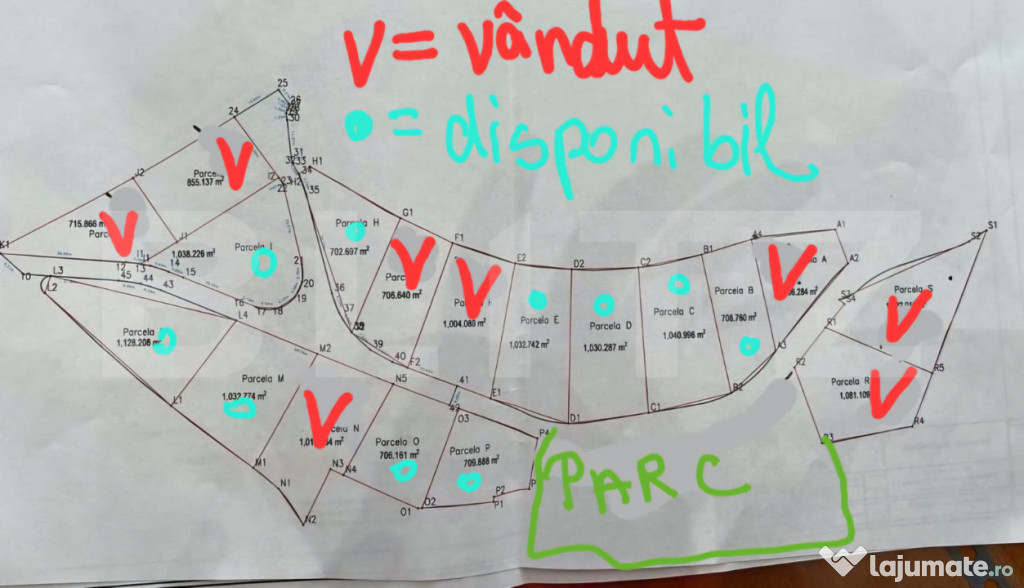 V = vândut
= disponibil
25
24
30
31
32 33
H1
34
35
J2
I2
23
22
H2
Parcela H
702.697 m²
G1
855.137 m²
715.866 m²
K1
J1
I1
1,038.226 m²
Parcela I
14
15
12
13
45
44
43
L3
L2
16
17
18
19
20
21
L4
36
37
39
40
F1
F2
706.640 m²
1,004.089 m²
E2
Parcela E
1,032.742 m²
E1
D2
Parcela D
1,030.287 m²
D1
C2
Parcela C
1,040.996 m²
C1
B1
Parcela B
708.760 m²
B2
A1
A2
A3
S1
S2
Parcela S
R1
R2
Parcela R
1,081.109
R5
R4
Parcela
1,128.208 m²
L1
M2
Parcela M
1,032.774 m²
M1
N5
41
N3
N4
N1
N2
Parcela O
706.161 m²
O1
O2
O3
Parcela P
709.888 m²
P4
P2
P1
PARC
BLITZ
lajumate.ro